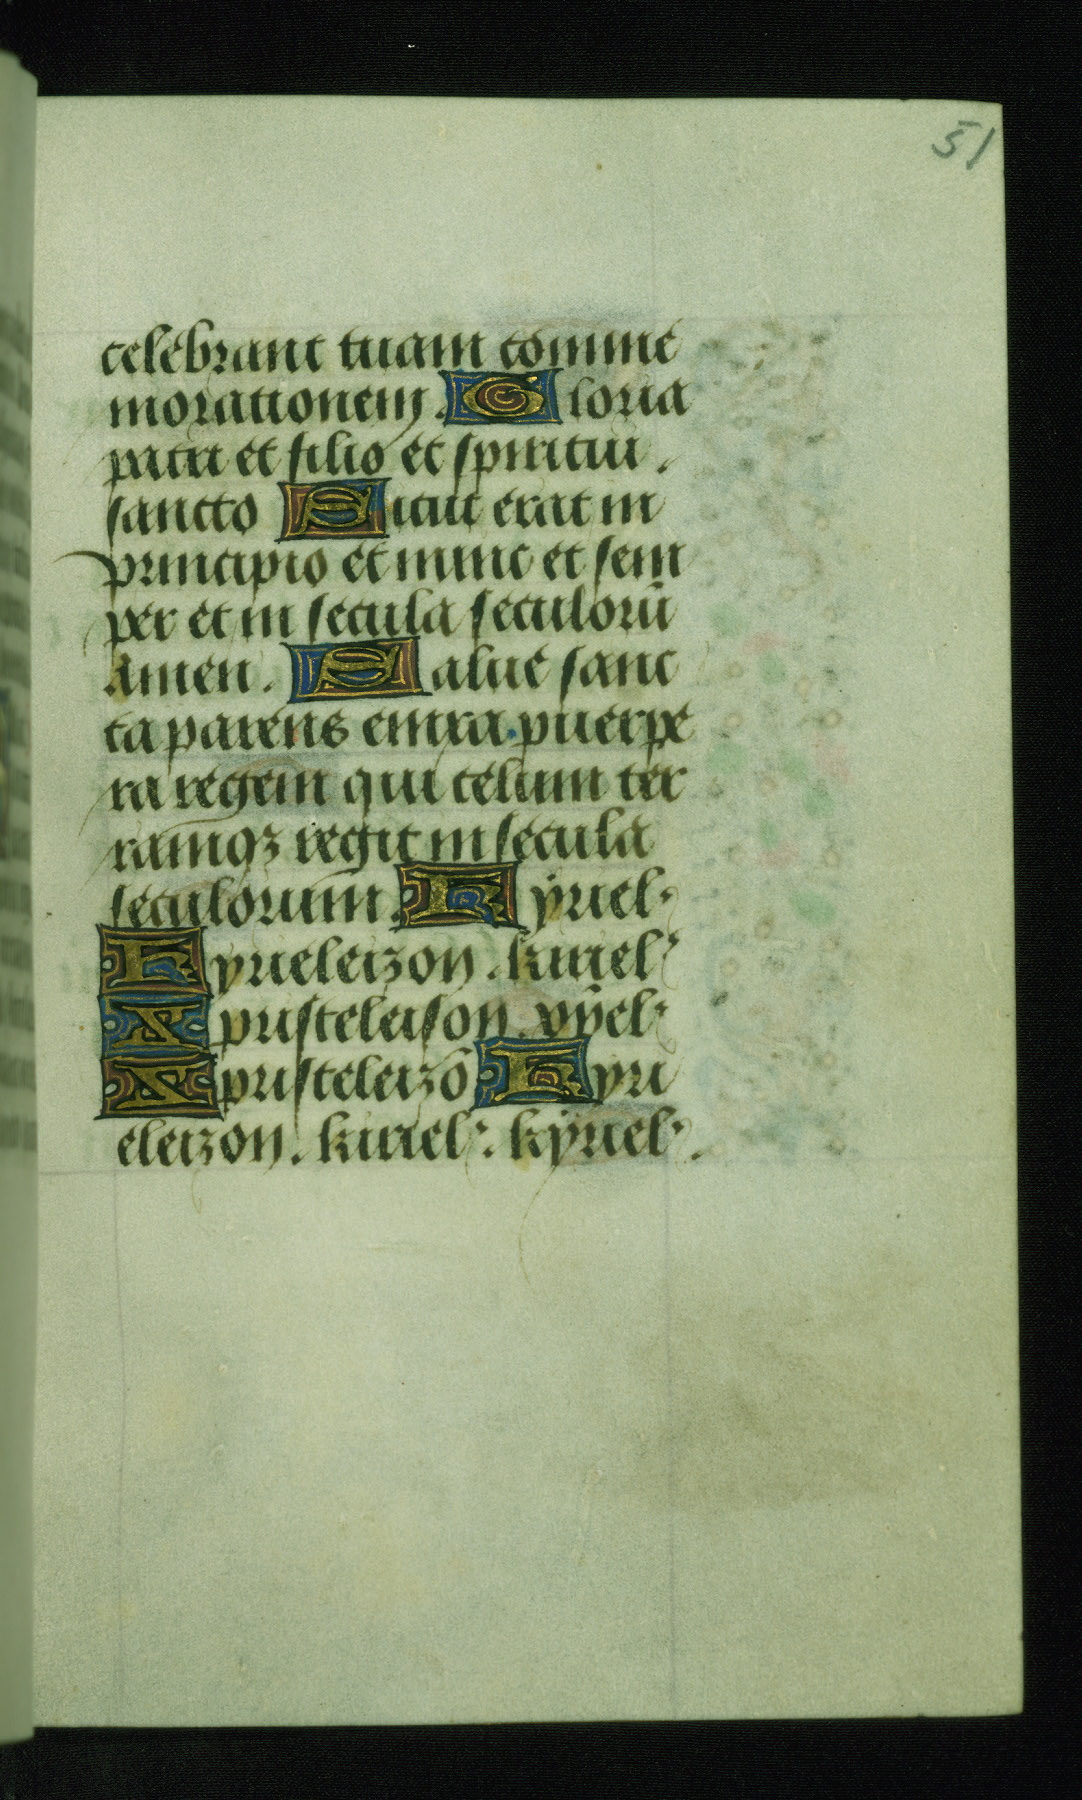 51
celebrant tuam comme
morationem. Gloria
patri et filio et spiritui.
sancto Sicut erat in
principio et nunc et sem
per et in secula seculorū
Amen. Salue sanc
ta parens enixa puerpe
ra regem qui celum ter
ramqꝫ regit in secula
seculorum. Kÿriel·
Kyrieleizon. kiriel·
Xpristeleison. xp̄el·
Xpristeleizō Kyri
eleizon. kiriel·. kÿriel·.